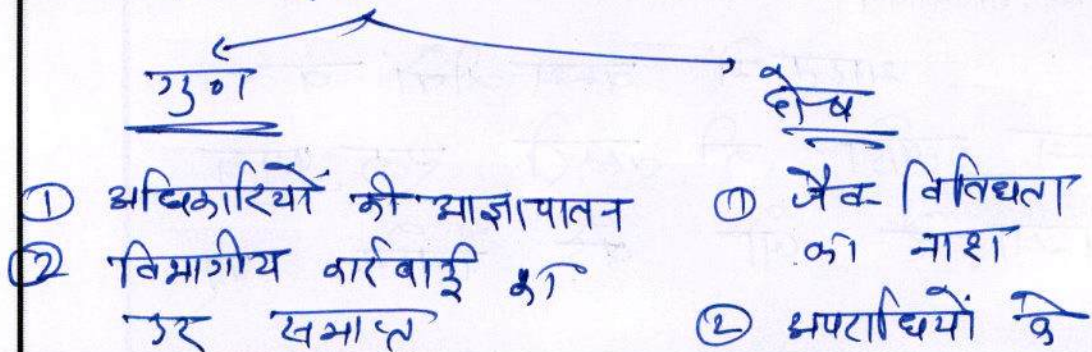 गुण
दोष
① अधिकारियों की आज्ञापालन
② विभागीय कार्रवाई का
डर समाप्त
① जैव विविधता
का नाश
② अपराधियों के